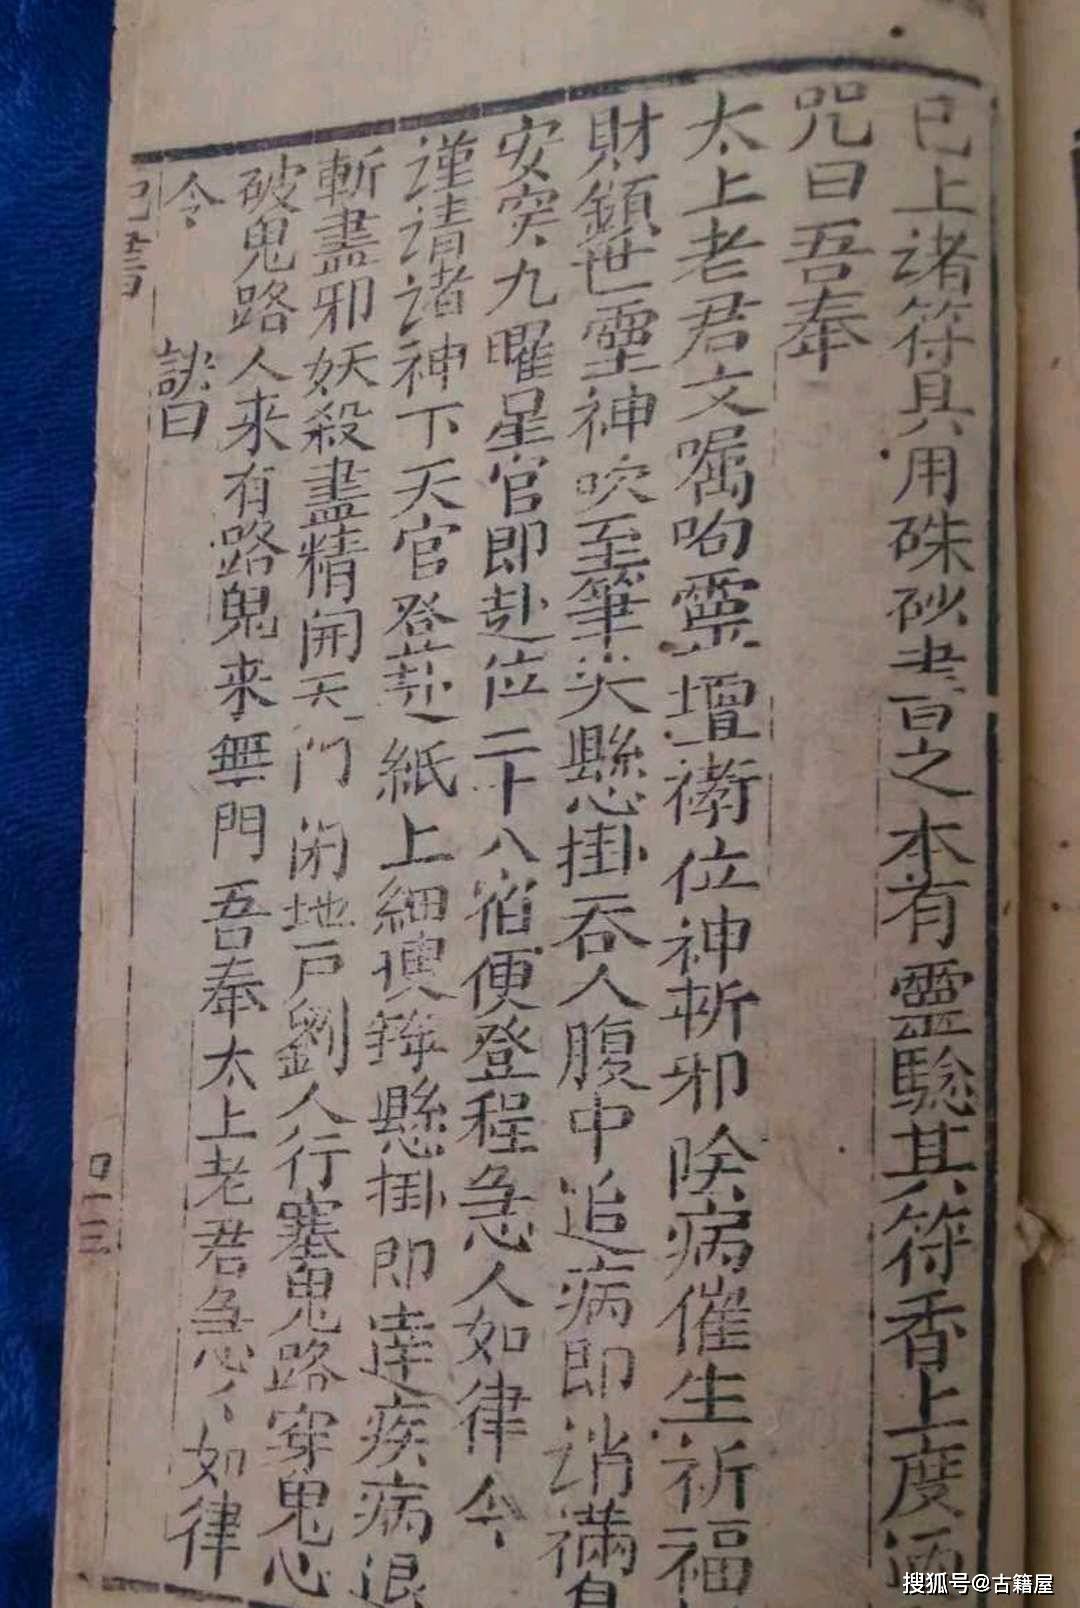 已上诸符具用硃砂書之本有靈驗其符香上度
咒曰吾奉
太上老君文嘱呴靈壇衛位神斬邪除病催生祈福
財鎮世靈神吹至筆尖懸掛吞人腹中追病即消滿身
安突九曜星官即赴位二十八宿便登程急人如律令
谨请诸神下天官登赴紙上細
懸掛即達疾病退
斬盡邪妖殺盡精開天門闭地户劉人行塞鬼路穿鬼心
破鬼路人来有路鬼来無門吾奉太上老君急〻如律
令 訣曰
口十三
搜狐号@古籍屋